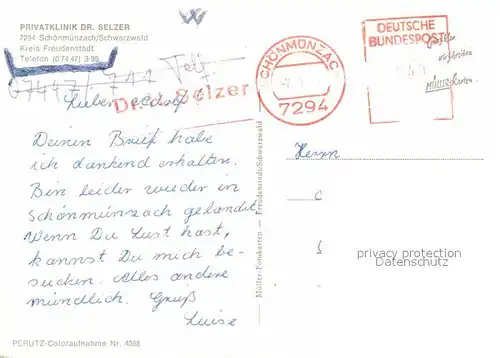 PRIVATKLINIK DR. SELZER
7294 Schönmünzach/Schwarzwald
Kreis Freudenstadt
Telefon (07447) 395
07447/ 711 Tel!
Lieber
Dr. Selzer
Deinen Brief habe
ich dankend erhalten.
Bin leider wieder in
Schönmünzach gelandet
Wenn Du Lust hast,
kannst Du mich be-
suchen. Alles andere
mündlich. Gruß
Luise
PERUTZ-Coloraufnahme Nr. 4368
Müller-Fotokarten — Freudenstadt/Schwarzwald
SCHÖNMÜNZACH
7294
DEUTSCHE
BUNDESPOST
Müller Karten
Herrn
privacy protection
Datenschutz